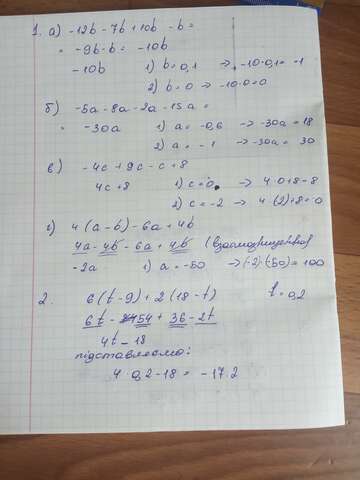 1. а) -12b - 7b + 10b - b =
= -9b - b = -10b
-10b 1) b = 0,1 → -10·0,1 = -1
2) b = 0 → -10·0 = 0
б) -5a - 8a - 2a - 15a =
= -30a 1) a = -0,6 → -30a = 18
2) a = -1 → -30a = 30
в) -4c + 9c - c + 8
4c + 8 1) c = 0 → 4·0 + 8 = 8
2) c = -2 → 4·(2) + 8 = 0
г) 4(a - b) - 6a + 4b
4a - 4b - 6a + 4b (взаємознищення)
-2a 1) a = -50 → (-2)·(-50) = 100
2. 6(t - 9) + 2(18 - t) t = 0,2
6t - 54 + 36 - 2t
4t - 18
підставляємо:
4 0,2 - 18 = -17.2